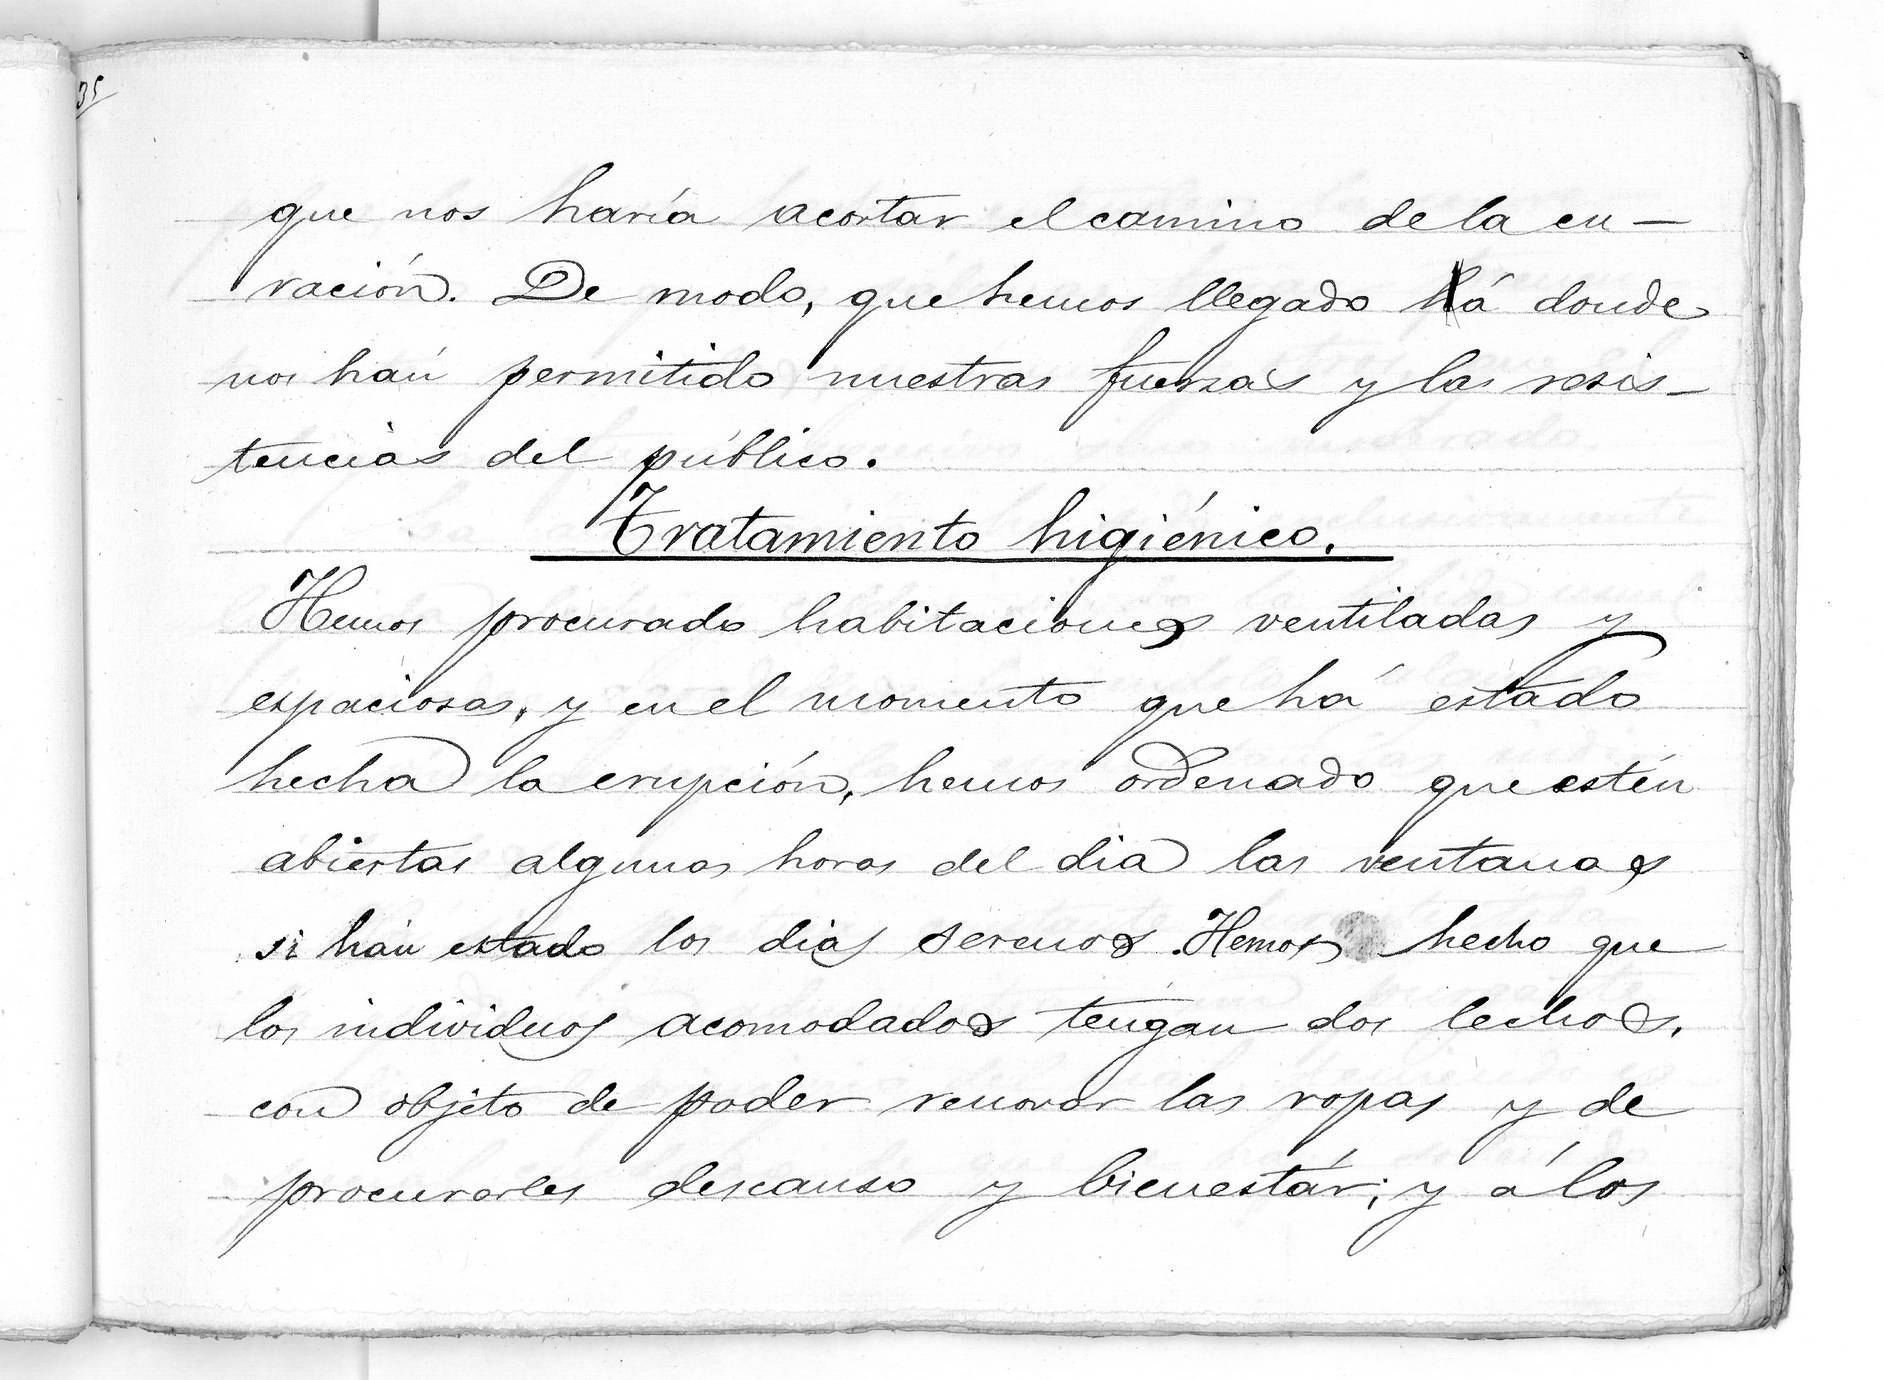 35
que nos haría acortar el camino de la cu-
ración. De modo, que hemos llegado á donde
nos hán permitido nuestras fuerzas y las resis-
tencias del público.
Tratamiento higiénico.
Hemos procurado habitaciones ventiladas y
espaciosas, y en el momento que há estado
hecha la erupción, hemos ordenado que estén
abiertas algunas horas del dia las ventanas
si hán estado los dias serenos. Hemos hecho que
los individuos acomodados tengan dos lechos,
con objeto de poder renovar las ropas y de
procurarles descanso y bienestár; y á los